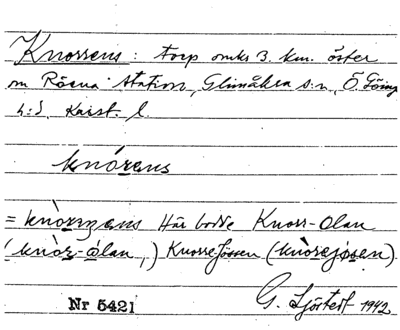 Knorrens: torp omkr 3. km. öster
om Röena station, Glimåkra s:n, Ö. Göinge
h:d, Krist. l.
knórens
= knòrmens Här bodde Knorr-Olan
(knòr-òlan,) Knorrejössen (knòrejøsen).
Nr 5421
G. Sjöstedt 1942